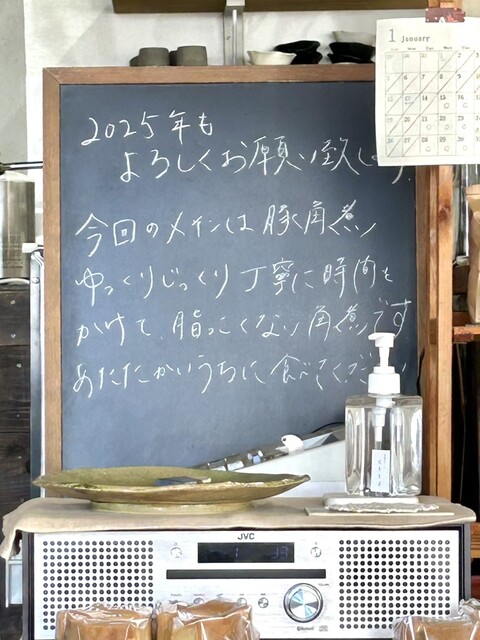 2025年も
よろしくお願い致します。
今回のメインは豚角煮
ゆっくりじっくり丁寧に時間を
かけて、脂っこくない角煮です
あたたかいうちに食べてください
1 January
JVC